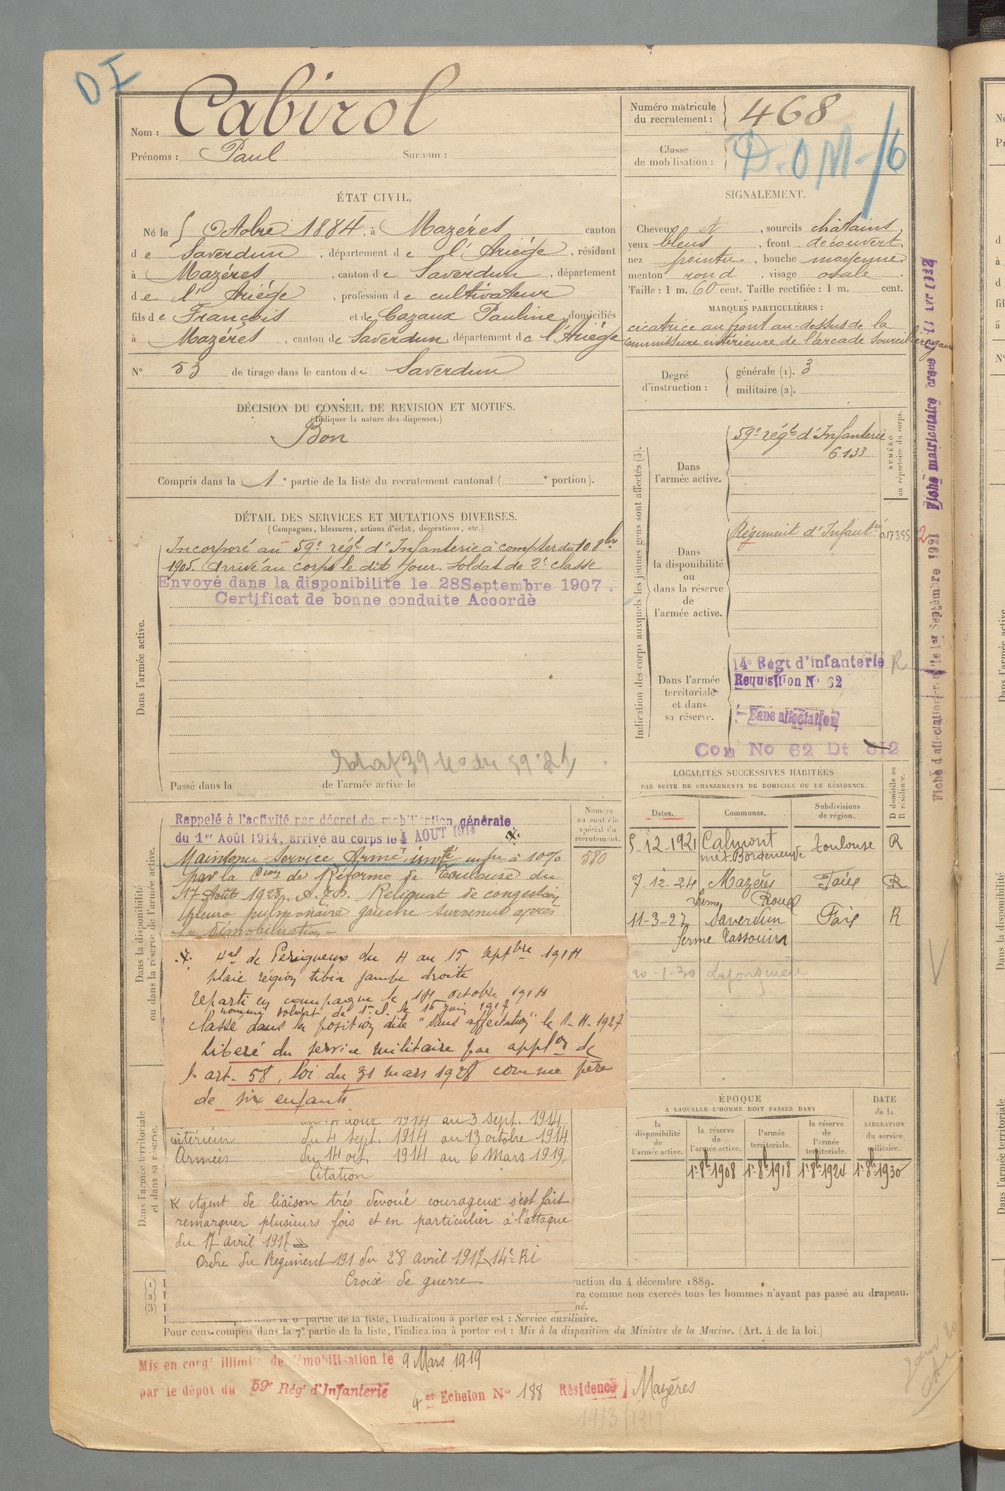 Nom : Cabirol
Prénoms : Paul Surnom :
Numéro matricule du recrutement : 468
Classe de mobilisation :
ÉTAT CIVIL.
Né le 5 Octobre 1884, à Mazéres canton
de Saverdun, département de l'Ariége, résidant
à Mazéres, canton de Saverdun, département
de l'Ariége, profession de cultivateur
fils de François et de Cazaux Pauline, domiciliés
à Mazéres, canton de Saverdun, département de l'Ariége
N° 53 de tirage dans le canton de Saverdun
SIGNALEMENT.
Cheveux et, sourcils chatains,
yeux bleus, front découvert,
nez pointu, bouche moyenne
menton rond, visage ovale
Taille : 1 m. 60 cent. Taille rectifiée : 1 m. cent.
MARQUES PARTICULIÈRES :
cicatrice au front au-dessus de la
commissure intérieure de l'arcade sourcilière
Degré d'instruction :
générale (1). 3
militaire (2).
DÉCISION DU CONSEIL DE REVISION ET MOTIFS.
(Indiquer la nature des dispenses.)
Bon
Compris dans la 1e partie de la liste du recrutement cantonal ( e portion).
DÉTAIL DES SERVICES ET MUTATIONS DIVERSES.
(Campagnes, blessures, actions d'éclat, décorations, etc.)
Dans l'armée active.
Incorporé au 59e régt d'Infanterie à compter du 10 8bre
1905. Arrivé au corps le dit jour. Soldat de 2e classe
Envoyé dans la disponibilité le 28 Septembre 1907.
Certificat de bonne conduite Accordé
Passé dans la de l'armée active le
Indication des corps auxquels les jeunes gens sont affectés (3).
NUMÉRO au répertoire du corps.
Dans l'armée active.
59e régt d'Infanterie
6133
Dans la disponibilité ou dans la réserve de l'armée active.
Régiment d'Infanterie
Dans l'armée territoriale et dans sa réserve.
14e Régt d'Infanterie
Requisition N° 62
Sans affectation
Con No 62 Dt 312
LOCALITÉS SUCCESSIVES HABITÉES
PAR SUITE DE CHANGEMENTS DE DOMICILE OU DE RÉSIDENCE.
Dates. Communes. Subdivisions de région. D domicile ou R résidence.
5.12.1921 Calmont Toulouse R
7-12-24 Mazéres Foix R
11-3-27 Saverdun Foix R
ferme
20-1-30
Dans la disponibilité ou dans la réserve de l'armée active.
Rappelé à l'activité par décret de mobilisation générale
du 1er Août 1914, arrivé au corps le 4 AOUT 1914
Numéro au contrôle spécial du recrutement.
580
Maintenu Service Armé invté infre à 10%
par la Cion de Réforme de Toulouse du
17 Août 1928. Reliquat de congestion
pleuro pulmonaire gauche survenue après
la démobilisation
du 4 au 15 septbre 1914
plaie région tibia jambe droite
reparti en campagne le 14 octobre 1914
Classé dans la position dite "sans affectation" le 1-11-1927
Libéré du service militaire par applon de
l'art. 58, loi du 31 mars 1928 comme père
de six enfants
Dans l'armée territoriale et dans sa réserve.
août 1914 au 3 sept. 1914
intérieur du 4 sept. 1914 au 13 octobre 1914
Armées du 14 oct. 1914 au 6 Mars 1919.
Citation
Agent de liaison très dévoué courageux s'est fait
remarquer plusieurs fois et en particulier à l'attaque
du 17 avril 1917
Ordre du Régiment 191 du 28 avril 1917 14e RI
Croix de guerre
ÉPOQUE
À LAQUELLE L'HOMME DOIT PASSER DANS
la disponibilité de l'armée active. la réserve de l'armée active. l'armée territoriale. la réserve de l'armée territoriale.
DATE de la LIBÉRATION du service militaire.
1er 8bre 1908 1er 8bre 1918 1er 8bre 1924 1er 8bre 1930
(1)
(2)
(3)
uction du 4 décembre 1889.
ra comme non exercés tous les hommes n'ayant pas passé au drapeau.
partie de la liste, l'indication à porter est : Service auxiliaire.
Pour ceux compris dans la 7e partie de la liste, l'indication à porter est : Mis à la disposition du Ministre de la Marine. (Art. 4 de la loi.)
Mis en congé illimité de démobilisation le 9 Mars 1919
par le dépôt du 59e Rég. d'Infanterie 4er Echelon N° 188 Résidence Mazéres
19/3/1919